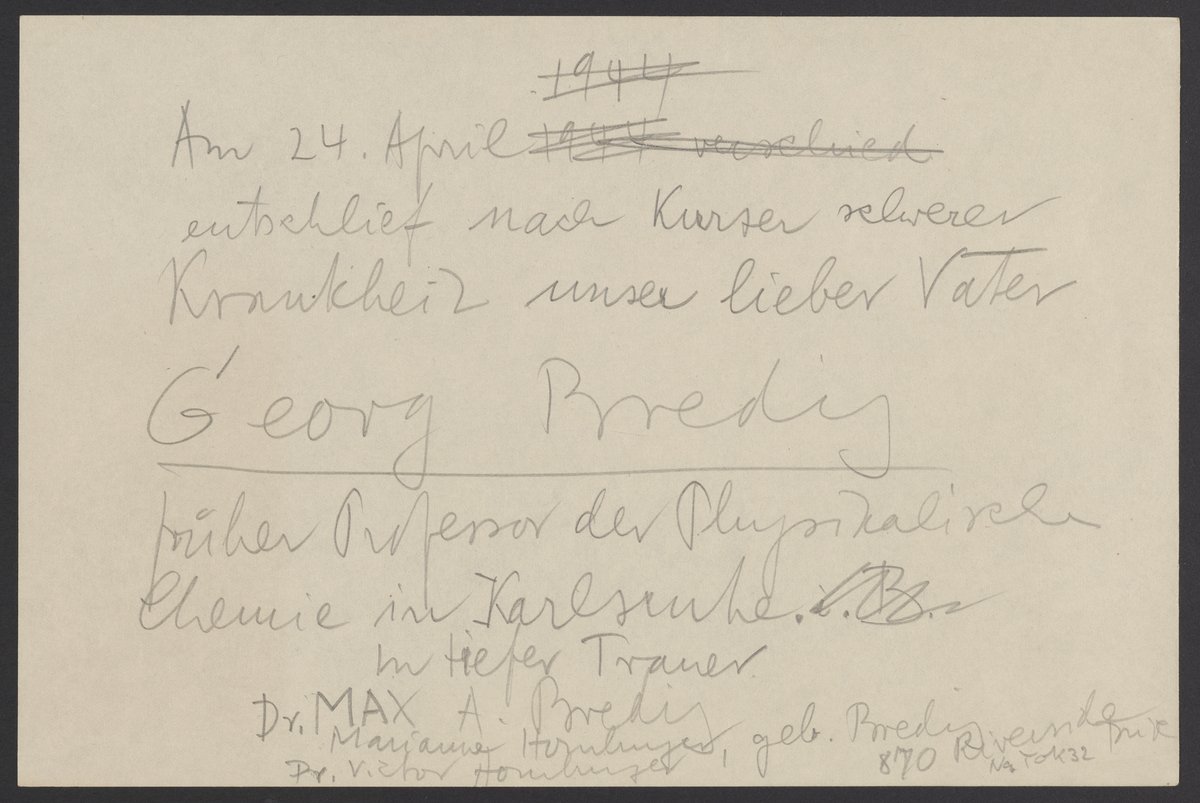 1944
Am 24. April 1944 verschied
entschlief nach Kurzer schwerer
Krankheit unser lieber Vater
Georg Bredig
früher Professor der Physikalische
Chemie in Karlsruhe. i. B.
In tiefer Trauer
Dr. MAX A. Bredig
Marianne Homburger, geb. Bredig
Dr. Victor Homburger
870 Riverside Drive
New York 32